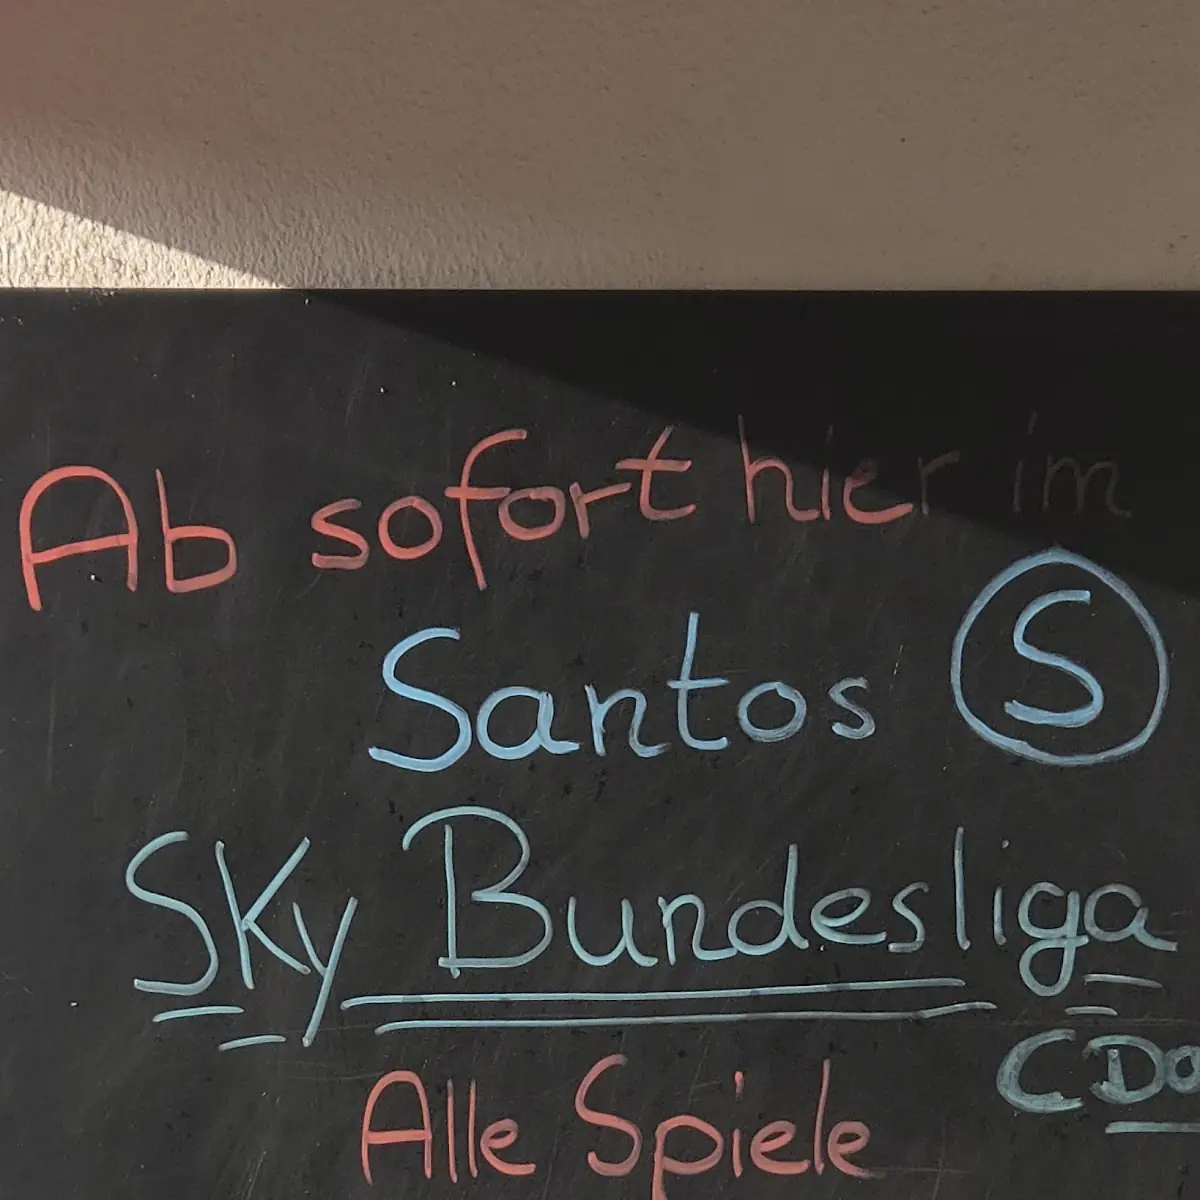 Ab sofort hier im
Santos S
Sky Bundesliga
Alle Spiele